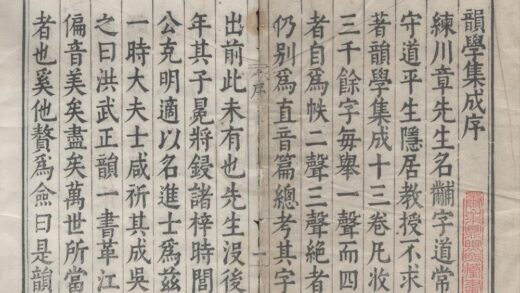 韻學集成序
練川章先生名黼字道常
守道平生隱居教授不求
著韻學集成十三卷凡收
三千餘字每舉一聲而四
者自爲帙二聲三聲絶者
仍別爲直音篇總考其字
序
一
出前此未有也先生沒後
年其子冕將鋟諸梓時閶
公克明適以名進士爲兹
一時大夫士咸祈其成吳
之曰洪武正韻一書革江
偏音美矣盡矣萬世所當
者也奚他贅爲僉曰是韻